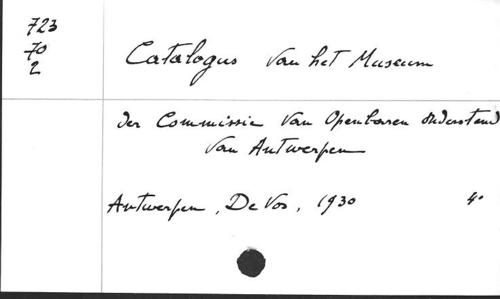 723
70
2
Catalogus van het Museum
der Commissie van Openbaren Onderstand
van Antwerpen
Antwerpen, De Vos, 1930 4°